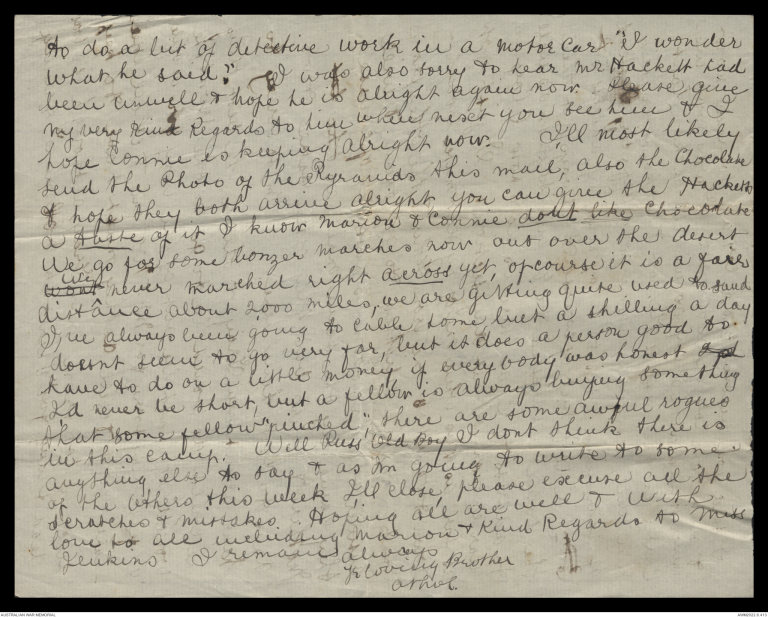 to do a bit of detective work in a motor car "I wonder
what he said." I was also sorry to hear Mr Hackett had
been unwell & hope he is alright again now Please give
my very Kind Regards to him when next you see him & I
hope Connie is keeping alright now. I'll most likely
send the Photo of the Pyramids this mail, also the Chocolate
& hope they both arrive alright you can give the Hacketts
a taste of it I know Marion & Connie dont like Chocolate
We go for some bonzer marches now out over the desert
wont We've never marched right across yet, ofcourse it is a fair
distance about 2000 miles, we are getting quite used to sand
I've always been going to cable some but a shilling a day
doesnt seem to go very far, but it does a person good to
have to do on a little money if everybody was honest
I'd never be short, but a fellow is always buying something
that some fellow "pinched" there are some awful rogues
in this camp. Well Russ' Old Boy I dont think there is
anything else to say & as I'm going to write to some
of the others this week I'll close please excuse all the
scratches & mistakes. Hoping all are well & With
love to all including Marion & Kind Regards to Miss
Jenkins I remain always
Yr loving Brother
Athol.
AUSTRALIAN WAR MEMORIAL